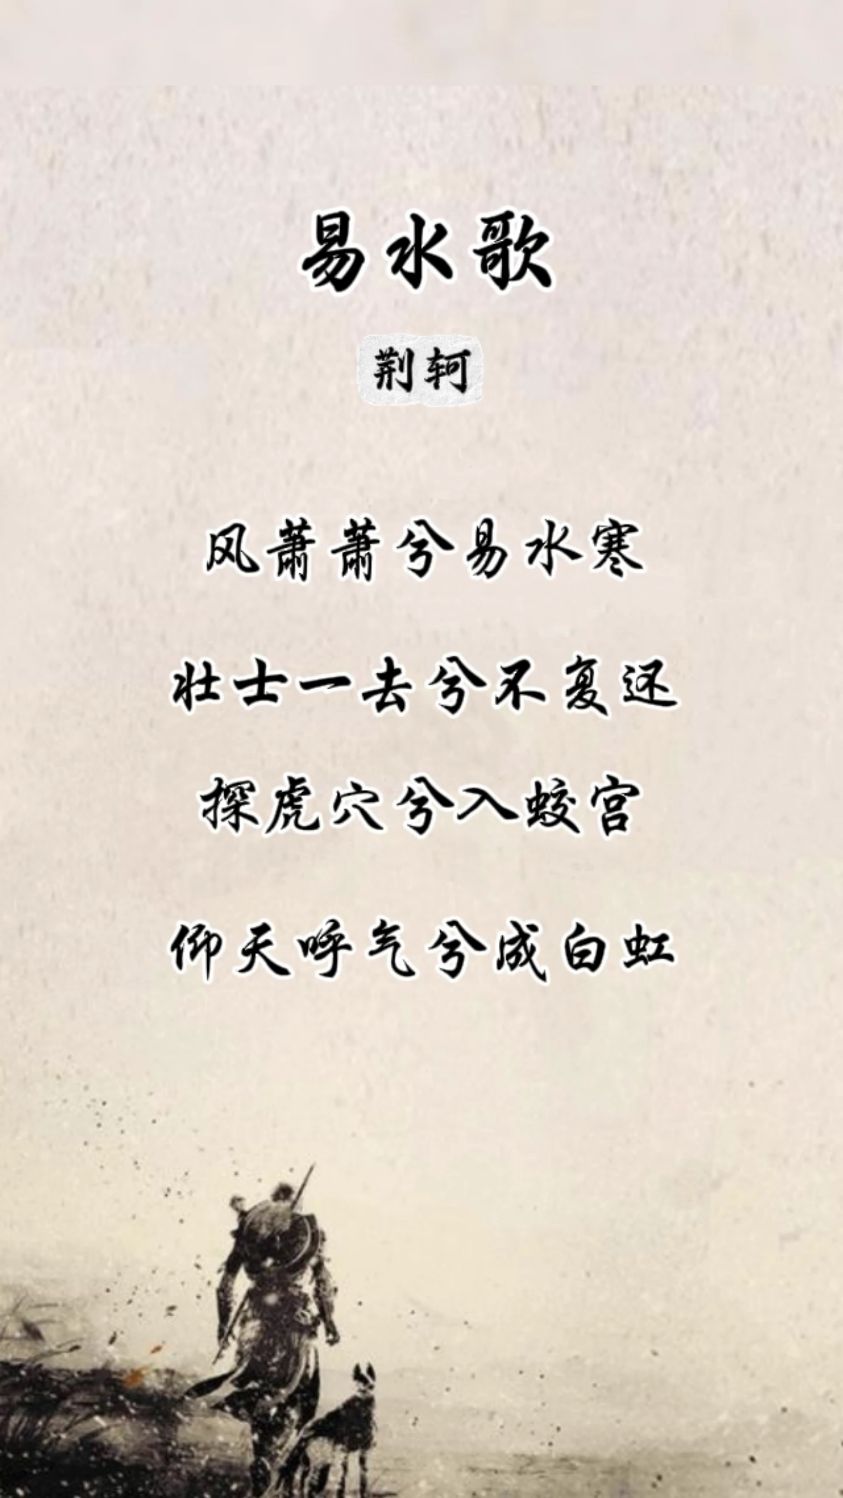 易水歌
荆轲
风萧萧兮易水寒
壮士一去兮不复还
探虎穴兮入蛟宫
仰天呼气兮成白虹